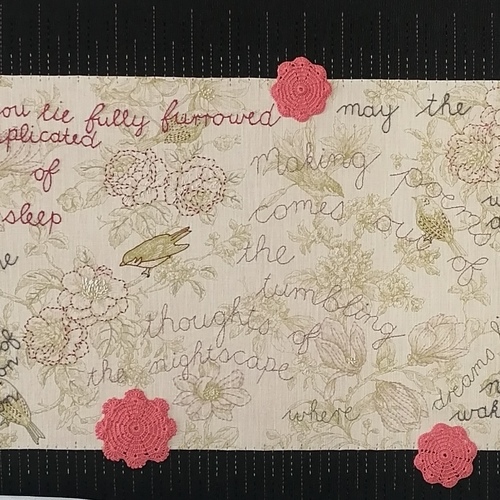 ou lie fully furrowed
plicated
of
sleep
may the
Making poems
comes out of
the
tumbling
thoughts of
the nightscape
where
dreams
wak
of